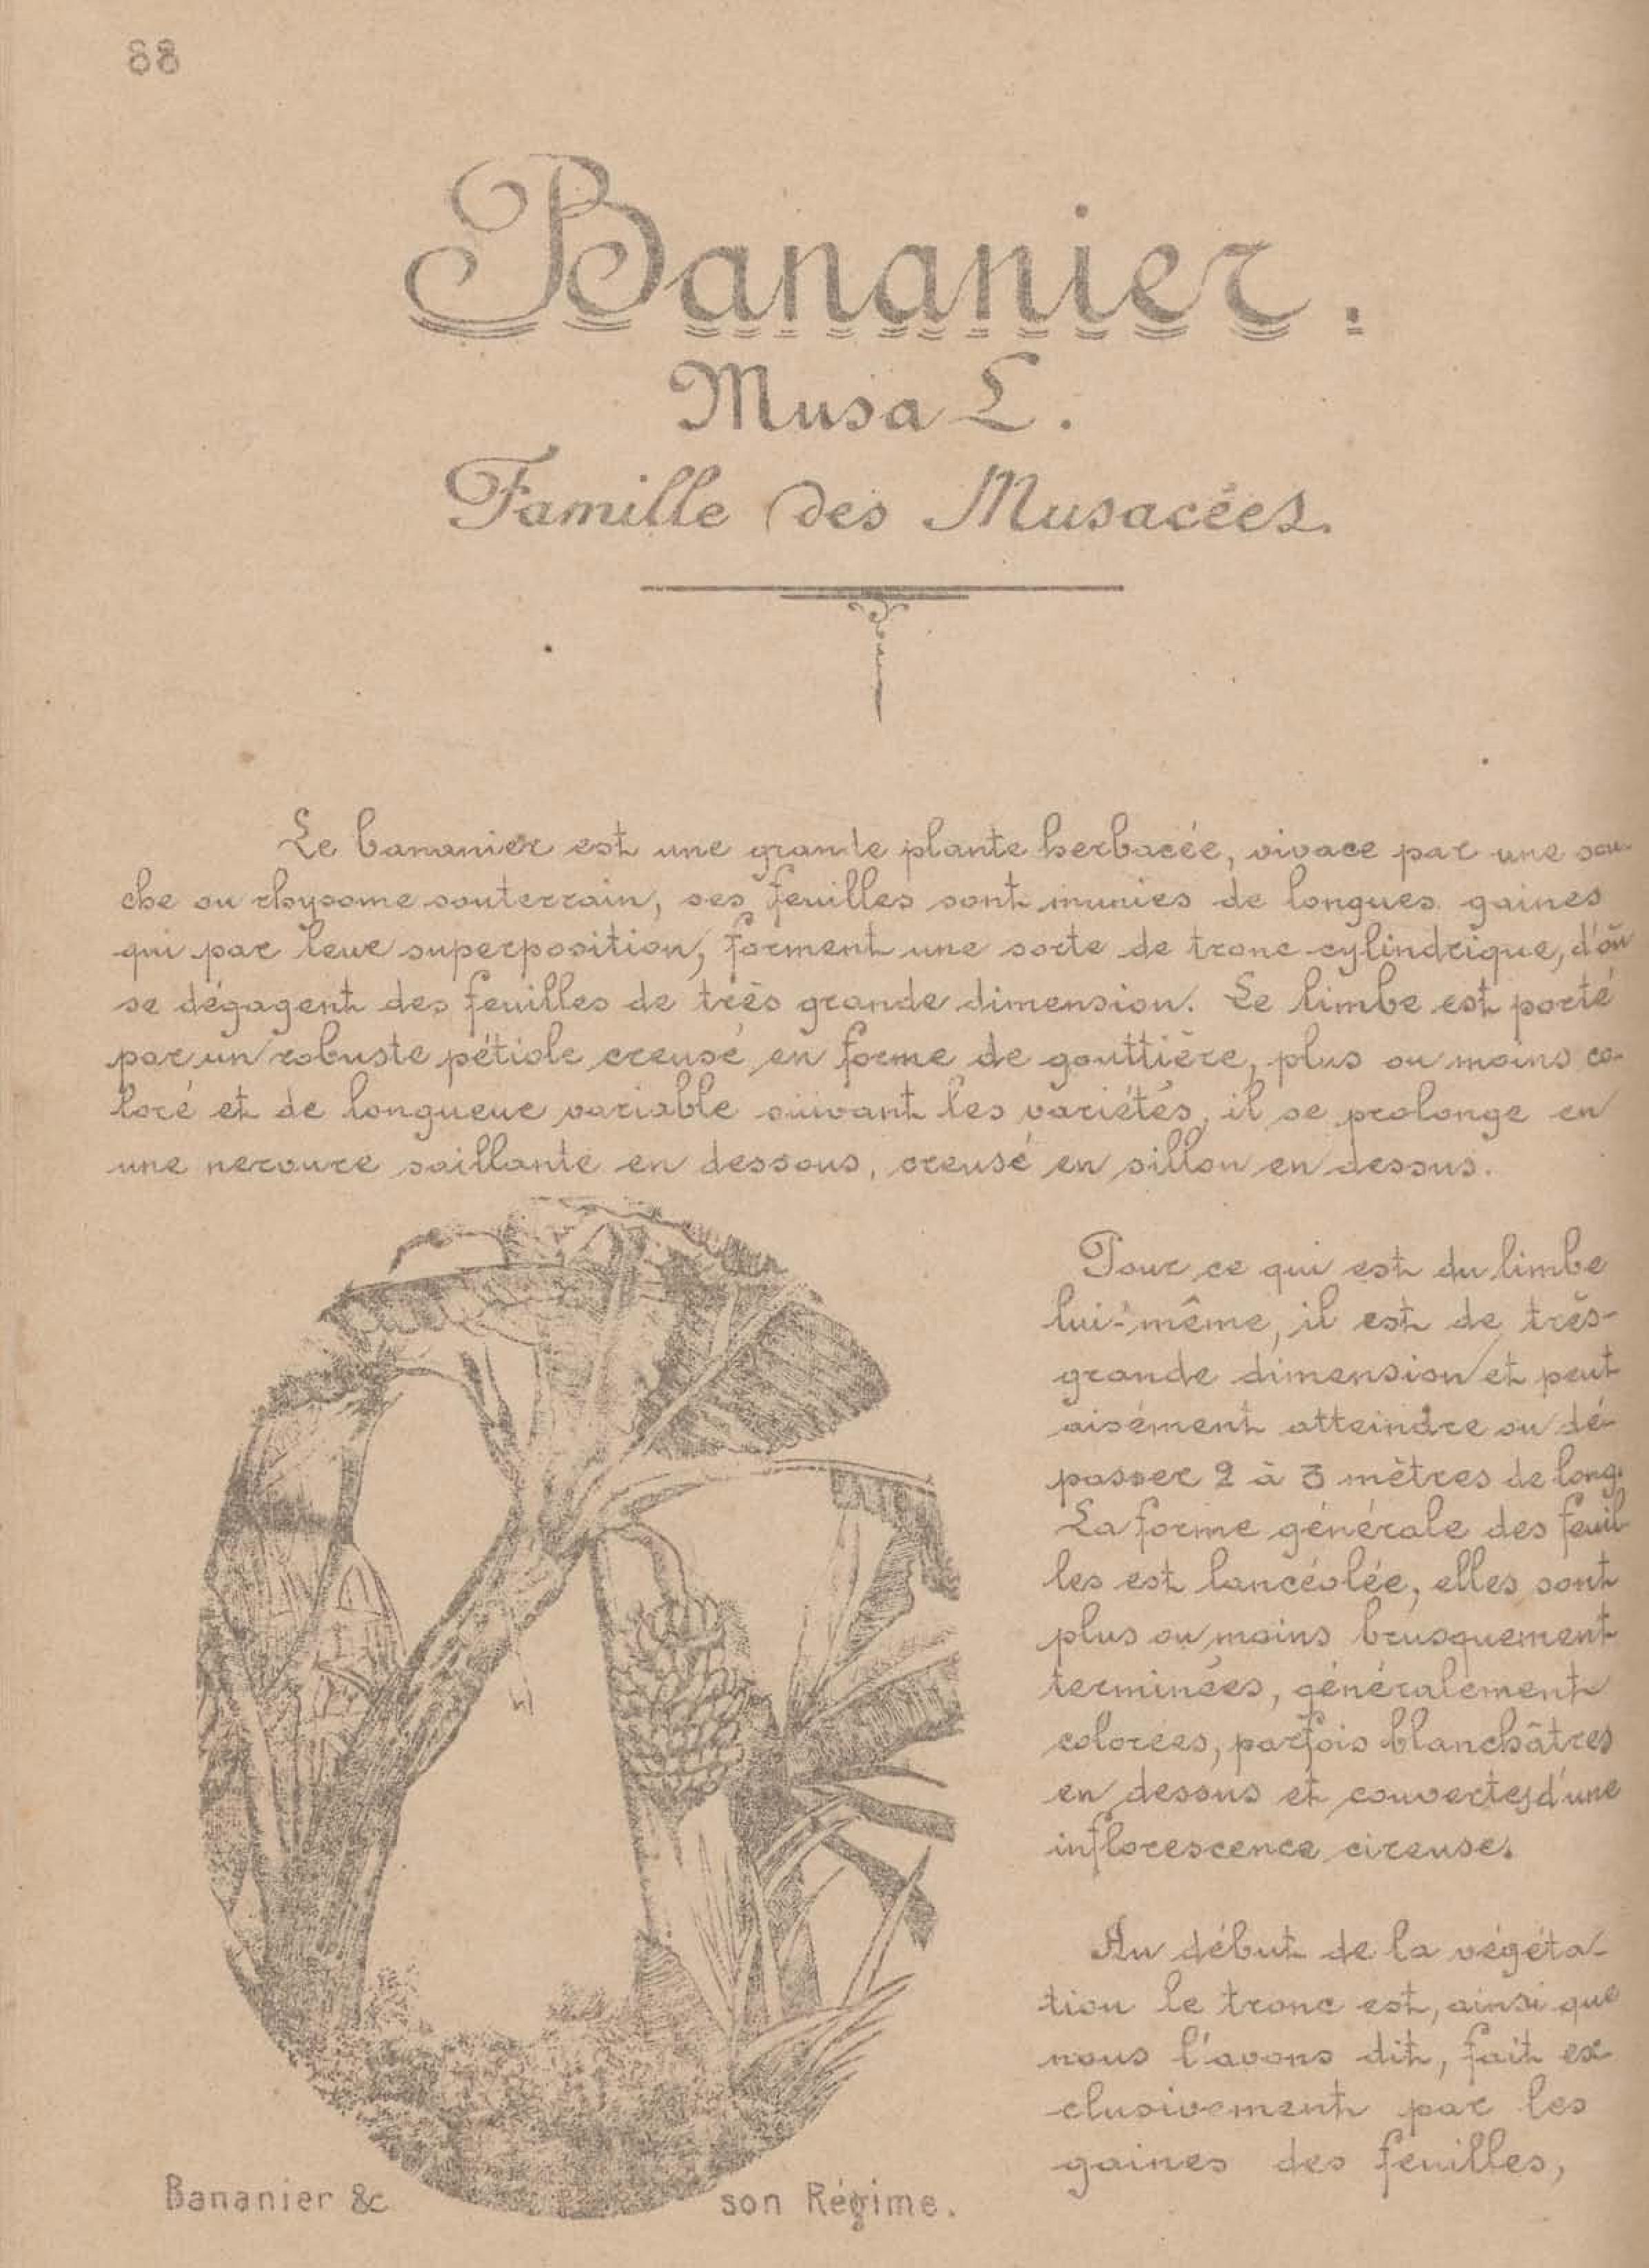 88
Bananier.
Musa L.
Famille des Musacées.
Le bananier est une grande plante herbacée, vivace par une sou-
che ou rhysome souterrain, ses feuilles sont munies de longues gaines
qui par leur superposition, forment une sorte de tronc cylindrique, d'où
se dégagent des feuilles de très grande dimension. Le limbe est porté
par un robuste pétiole creusé en forme de gouttière, plus ou moins co-
loré et de longueur variable suivant les variétés, il se prolonge en
une nervure saillante en dessous, creusé en sillon en dessus.
Pour ce qui est du limbe
lui-même, il est de très-
grande dimension et peut
aisément atteindre ou dé-
passer 2 à 3 mètres de long.
La forme générale des feuil
les est lancéolée, elles sont
plus ou moins brusquement
terminées, généralement
colorées, parfois blanchâtres
en dessus et couvertes d'une
inflorescence cireuse.
Au début de la végéta-
tion le tronc est, ainsi que
nous l'avons dit, fait ex-
clusivement par les
gaines des feuilles,
Bananier & son Régime.